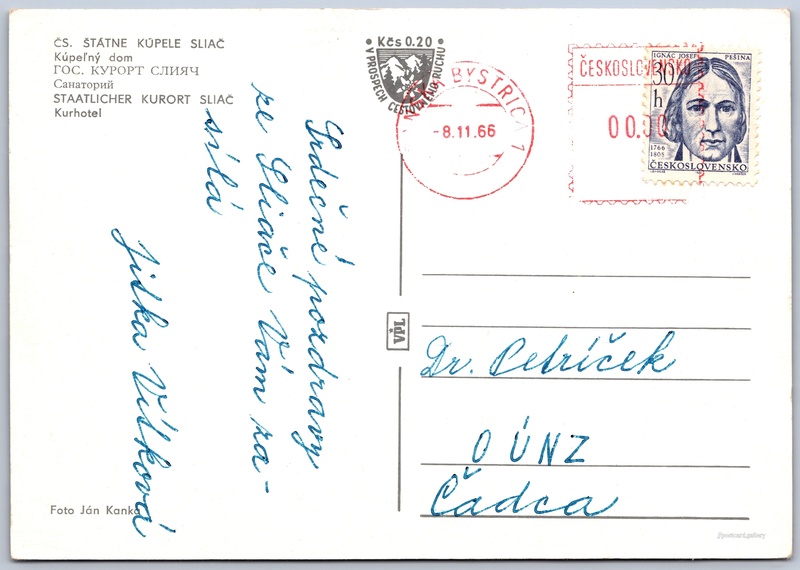 ČS. ŠTÁTNE KÚPELE SLIAČ
Kúpeľný dom
ГОС. КУРОРТ СЛИЯЧ
Санаторий
STAATLICHER KURORT SLIAČ
Kurhotel
Srdečné pozdravy
ze Sliače Vám za-
sílá
Jitka Vítková
Foto Ján Kanka
• Kčs 0.20 •
V PROSPECH ČESTOVNÉHO RUCHU
BYSTRICA 1
-8.11.66
ČESKOSLOVENSKO
00.00
IGNÁC JOSEF PEŠINA
30
h
1766
1808
ČESKOSLOVENSKO
VPL
Dr. Petríček
OÚNZ
Čádca